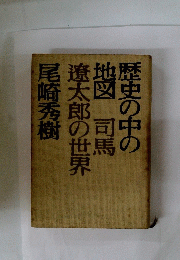 歴史の中の
地図　司馬
遼太郎の世界
尾崎秀樹